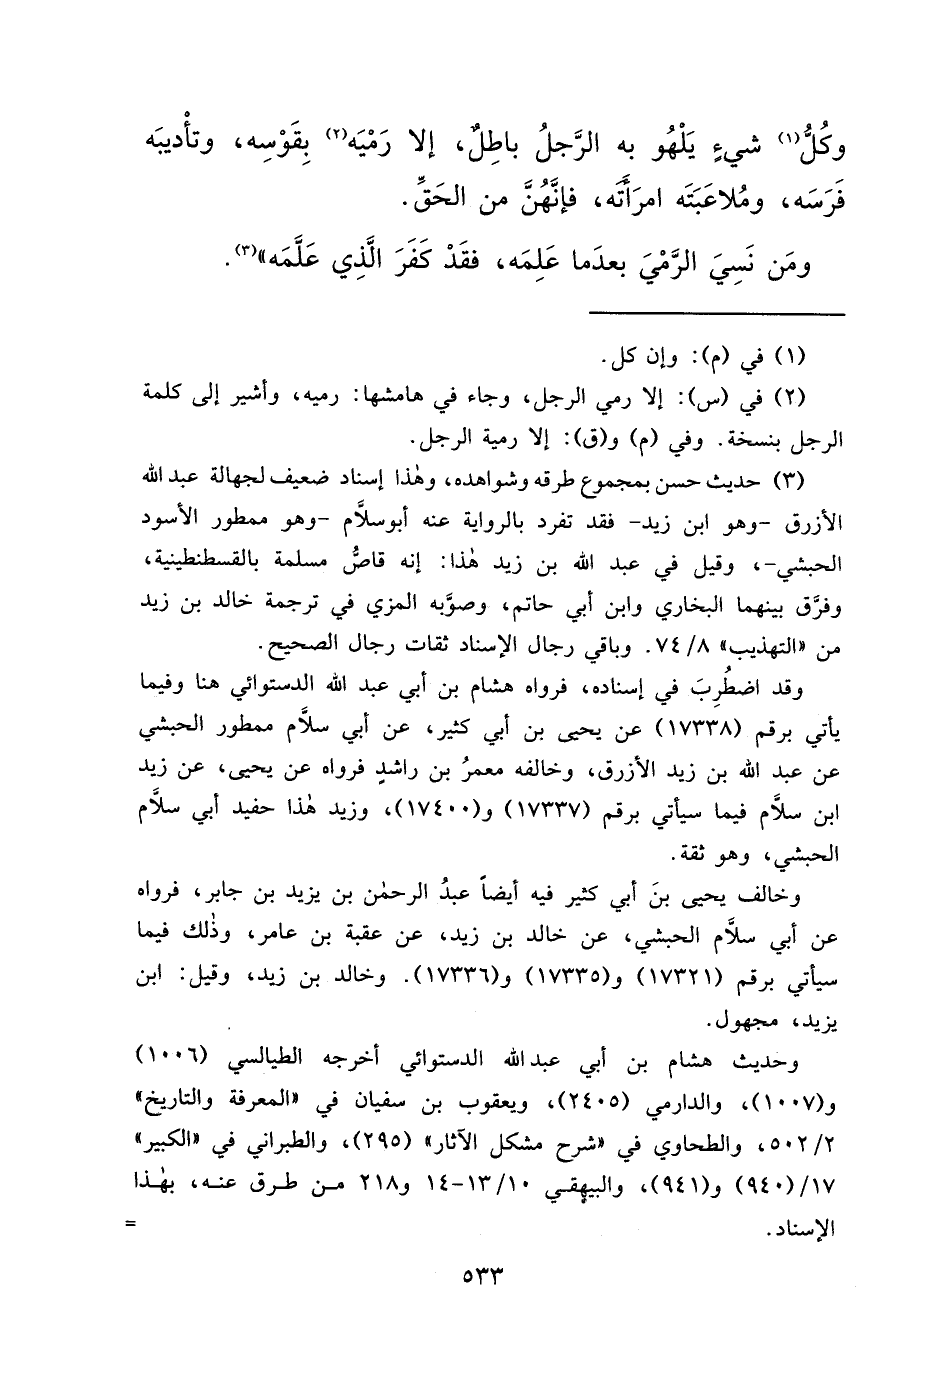 وكُلُّ(١) شيءٍ يَلْهُو به الرَّجلُ باطِلٌ، إلا رَمْيَه(٢) بِقَوْسِه، وتأْديبَه
فَرَسَه، ومُلاعَبَتَه امرَأَتَه، فإنَّهُنَّ من الحَقِّ.
ومَن نَسِيَ الرَّمْيَ بعدَما عَلِمَه، فقَدْ كَفَرَ الَّذِي عَلَّمَه»(٣).
(١) في (م): وإن كل.
(٢) في (س): إلا رمي الرجل، وجاء في هامشها: رميه، وأشير إلى كلمة
الرجل بنسخة. وفي (م) و(ق): إلا رمية الرجل.
(٣) حديث حسن بمجموع طرقه وشواهده، وهٰذا إسناد ضعيف لجهالة عبد الله
الأزرق -وهو ابن زيد- فقد تفرد بالرواية عنه أبوسلَّام -وهو ممطور الأسود
الحبشي-، وقيل في عبد الله بن زيد هٰذا: إنه قاصُّ مسلمة بالقسطنطينية،
وفرَّق بينهما البخاري وابن أبي حاتم، وصوَّبه المزي في ترجمة خالد بن زيد
من «التهذيب» ٧٤/٨. وباقي رجال الإسناد ثقات رجال الصحيح.
وقد اضطُرِبَ في إسناده، فرواه هشام بن أبي عبد الله الدستوائي هنا وفيما
يأتي برقم (١٧٣٣٨) عن يحيى بن أبي كثير، عن أبي سلَّام ممطور الحبشي
عن عبد الله بن زيد الأزرق، وخالفه معمرُ بن راشدٍ فرواه عن يحيى، عن زيد
ابن سلَّام فيما سيأتي برقم (١٧٣٣٧) و(١٧٤٠٠)، وزيد هٰذا حفيد أبي سلَّام
الحبشي، وهو ثقة.
وخالف يحيى بنَ أبي كثير فيه أيضاً عبدُ الرحمٰن بن يزيد بن جابر، فرواه
عن أبي سلَّام الحبشي، عن خالد بن زيد، عن عقبة بن عامر، وذٰلك فيما
سيأتي برقم (١٧٣٢١) و(١٧٣٣٥) و(١٧٣٣٦). وخالد بن زيد، وقيل: ابن
يزيد، مجهول.
وحديث هشام بن أبي عبدالله الدستوائي أخرجه الطيالسي (١٠٠٦)
و(١٠٠٧)، والدارمي (٢٤٠٥)، ويعقوب بن سفيان في «المعرفة والتاريخ»
٥٠٢/٢، والطحاوي في «شرح مشكل الآثار» (٢٩٥)، والطبراني في «الكبير»
١٧/(٩٤٠) و(٩٤١)، والبيهقي ١٣/١٠-١٤ و٢١٨ من طرق عنه، بهٰذا
الإسناد. =
٥٣٣